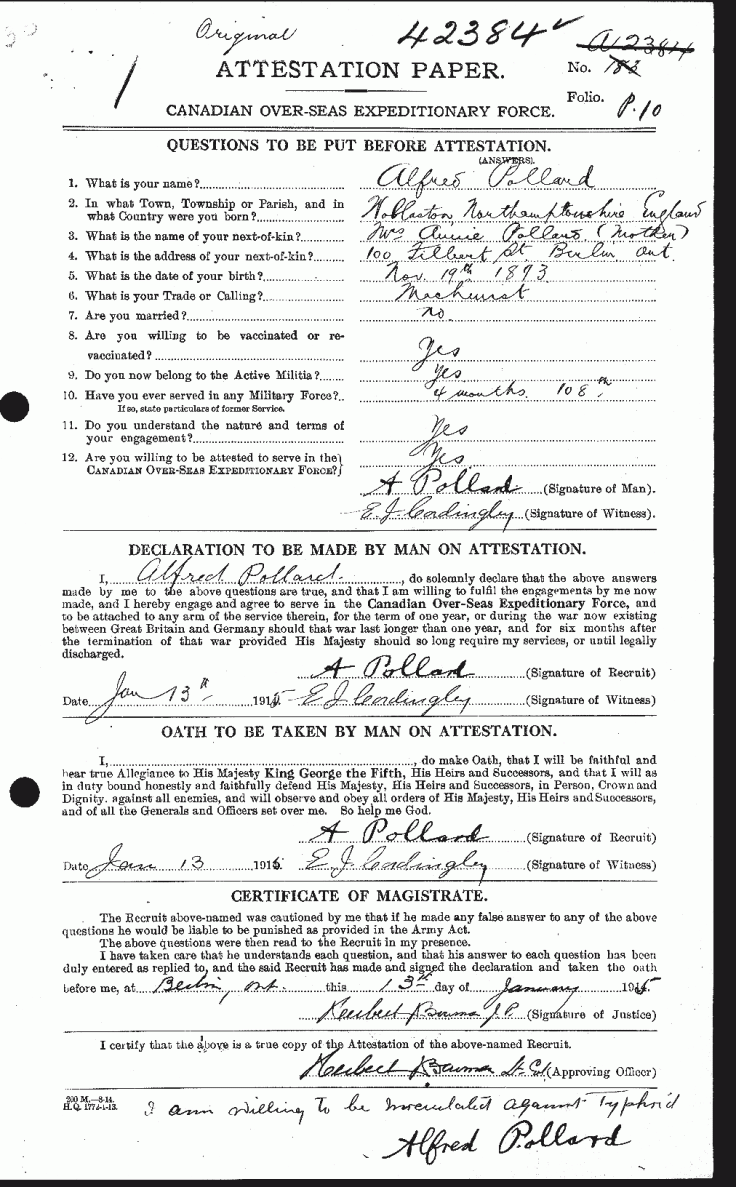 Original 42384
A12384
ATTESTATION PAPER. No. 183
Folio. P.10
CANADIAN OVER-SEAS EXPEDITIONARY FORCE.
QUESTIONS TO BE PUT BEFORE ATTESTATION.
(ANSWERS).
1. What is your name? Alfred Pollard
2. In what Town, Township or Parish, and in
what Country were you born? Wollaston, Northamptonshire England
3. What is the name of your next-of-kin? Mrs Annie Pollard (Mother)
4. What is the address of your next-of-kin? 100 Filbert St Berlin Ont.
5. What is the date of your birth? Nov. 19th 1893
6. What is your Trade or Calling? Machinist
7. Are you married? no
8. Are you willing to be vaccinated or re-
vaccinated? Yes
9. Do you now belong to the Active Militia? Yes
10. Have you ever served in any Military Force? 4 months. 108th
If so, state particulars of former Service.
11. Do you understand the nature and terms of
your engagement? Yes
12. Are you willing to be attested to serve in the
CANADIAN OVER-SEAS EXPEDITIONARY FORCE? Yes
A Pollard (Signature of Man).
E J Cordingley (Signature of Witness).
DECLARATION TO BE MADE BY MAN ON ATTESTATION.
I, Alfred Pollard, do solemnly declare that the above answers
made by me to the above questions are true, and that I am willing to fulfil the engagements by me now
made, and I hereby engage and agree to serve in the Canadian Over-Seas Expeditionary Force, and
to be attached to any arm of the service therein, for the term of one year, or during the war now existing
between Great Britain and Germany should that war last longer than one year, and for six months after
the termination of that war provided His Majesty should so long require my services, or until legally
discharged.
A Pollard (Signature of Recruit)
Date Jan 13th 1915. E J Cordingley (Signature of Witness)
OATH TO BE TAKEN BY MAN ON ATTESTATION.
I, , do make Oath, that I will be faithful and
bear true Allegiance to His Majesty King George the Fifth, His Heirs and Successors, and that I will as
in duty bound honestly and faithfully defend His Majesty, His Heirs and Successors, in Person, Crown and
Dignity. against all enemies, and will observe and obey all orders of His Majesty, His Heirs and Successors,
and of all the Generals and Officers set over me. So help me God.
A Pollard (Signature of Recruit)
Date Jan 13 1915. E J Cordingley (Signature of Witness)
CERTIFICATE OF MAGISTRATE.
The Recruit above-named was cautioned by me that if he made any false answer to any of the above
questions he would be liable to be punished as provided in the Army Act.
The above questions were then read to the Recruit in my presence.
I have taken care that he understands each question, and that his answer to each question has been
duly entered as replied to, and the said Recruit has made and signed the declaration and taken the oath
before me, at Berlin, Ont. this 13th day of January 1915
Herbert Bowman J.P. (Signature of Justice)
I certify that the above is a true copy of the Attestation of the above-named Recruit.
Herbert Bowman Lt. Col (Approving Officer)
200 M.—8-14.
H.Q. 1772-1-13.
I am willing to be inoculated against Typhoid
Alfred Pollard